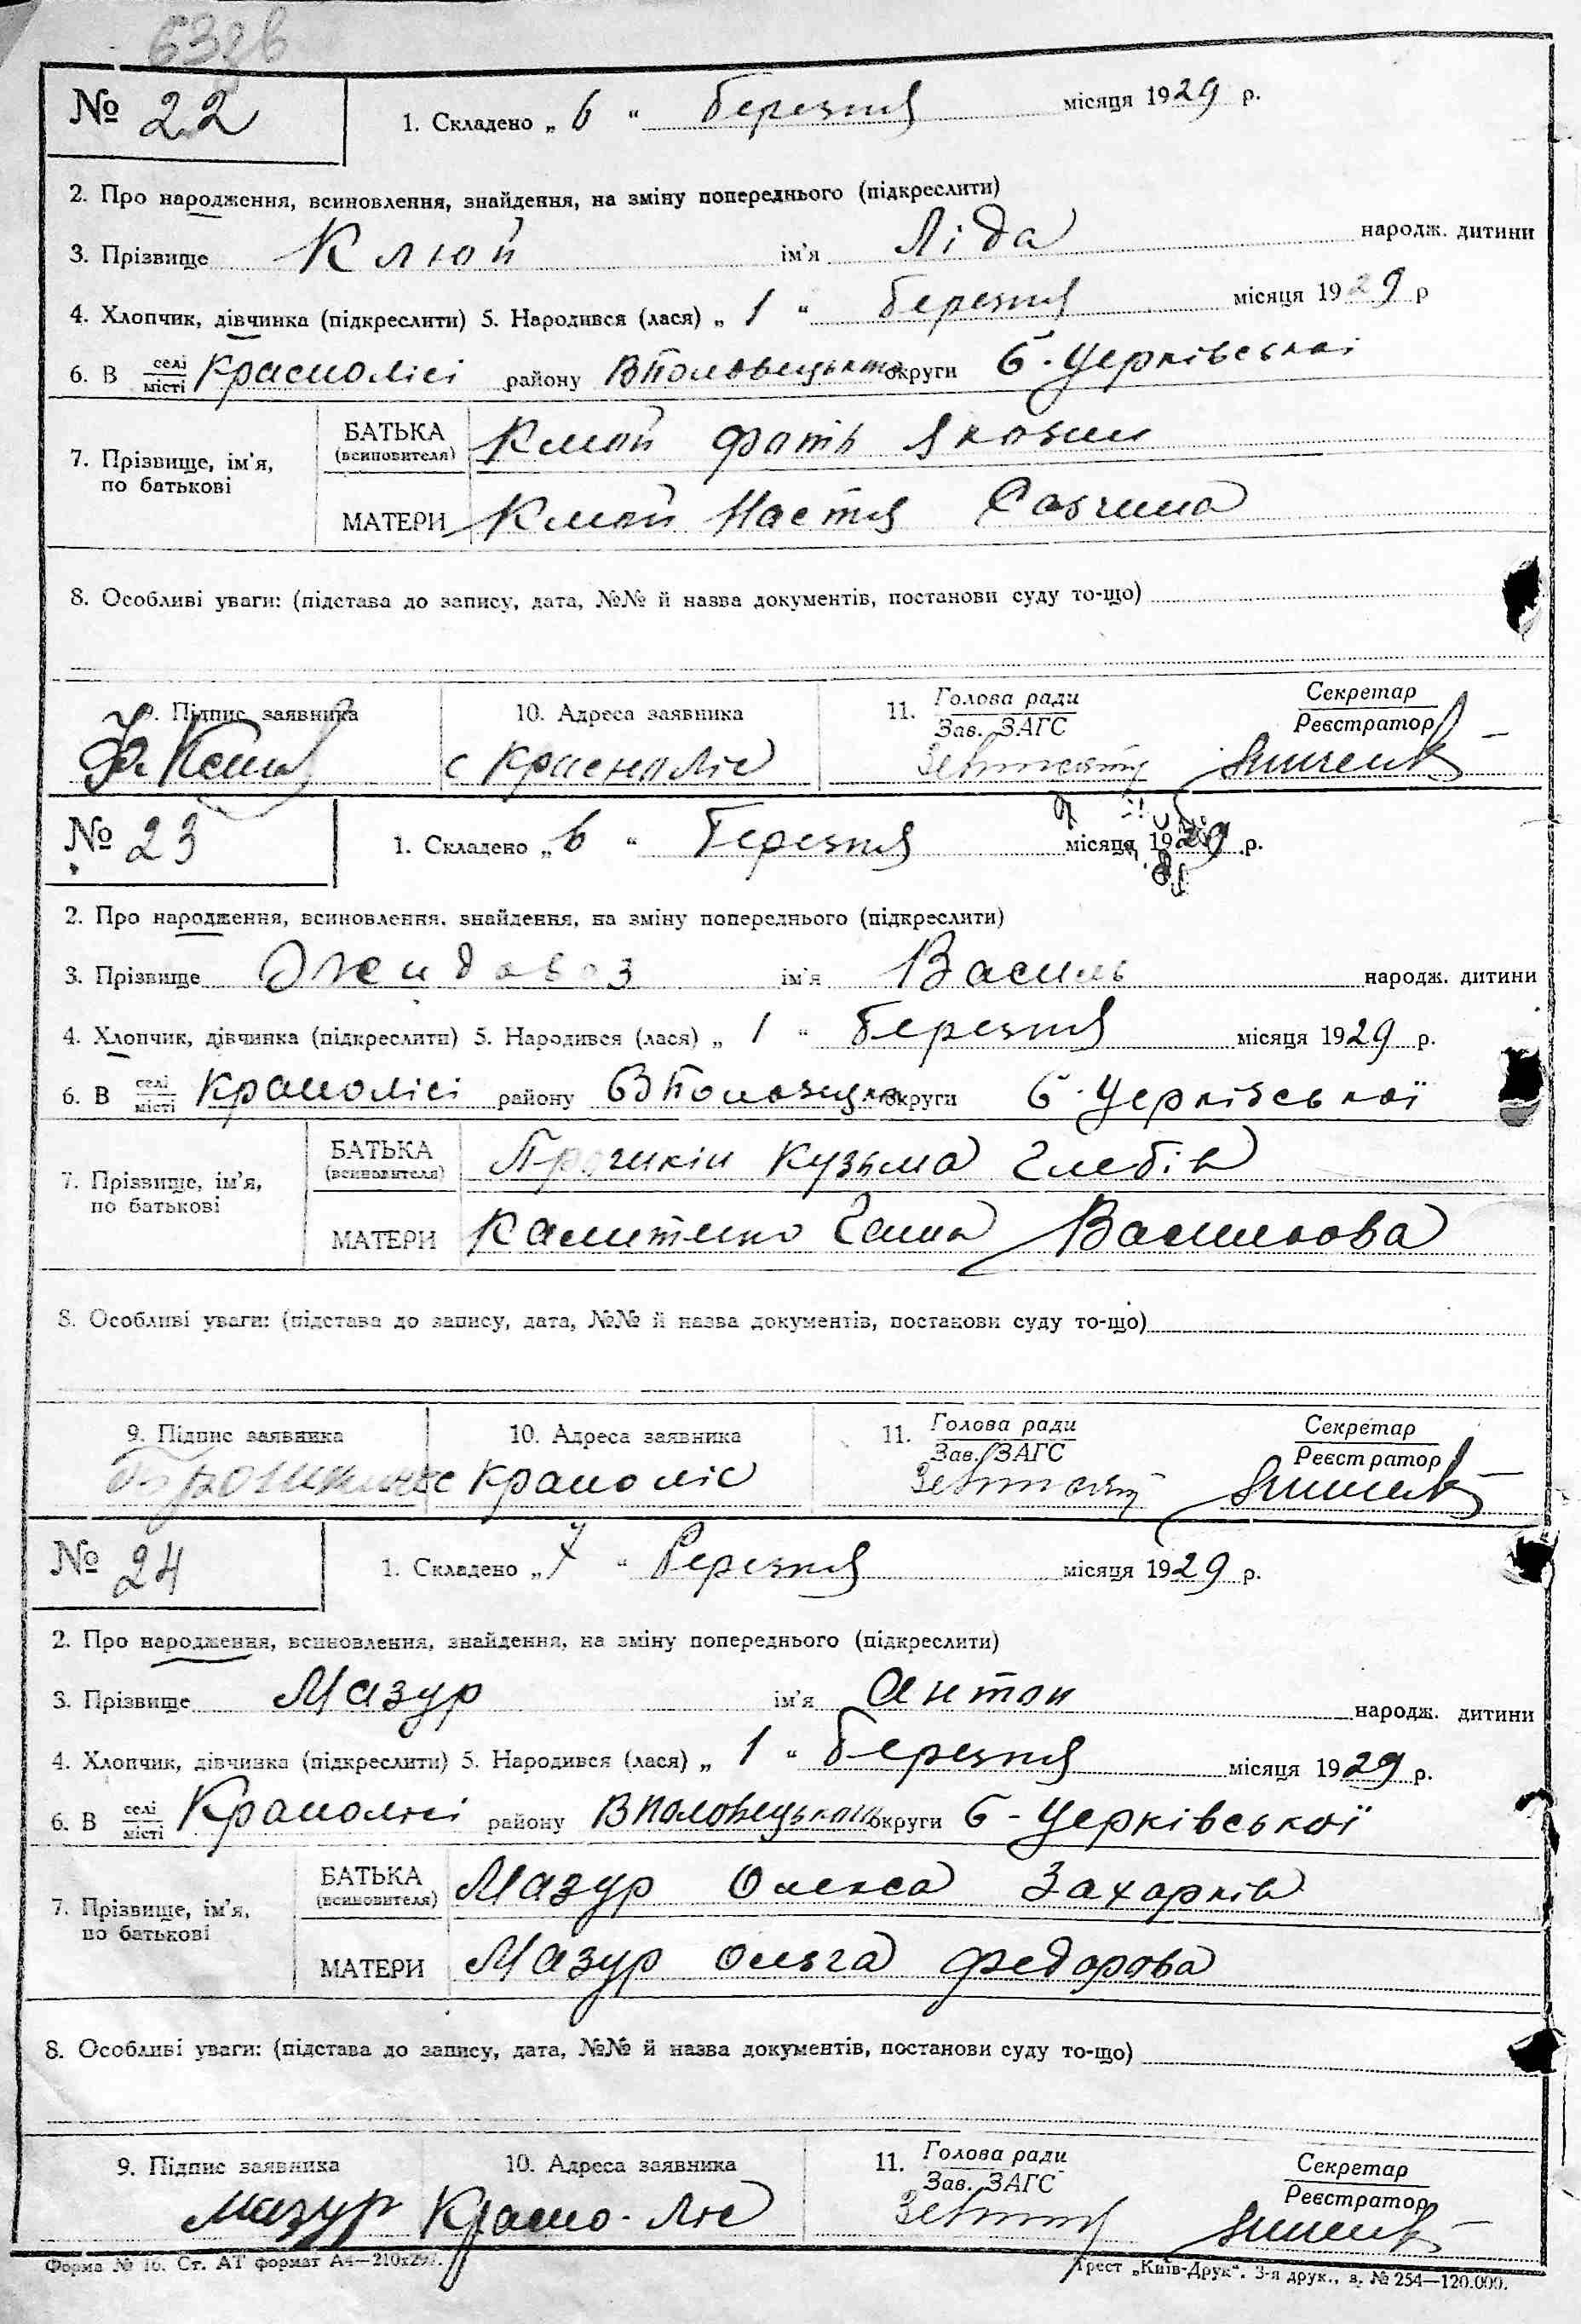 № 22
1. Складено „ 6 “ березня місяця 1929 р.
2. Про народження, всиновлення, знайдення, на зміну попереднього (підкреслити)
3. Прізвище Клюй ім'я Ліда народж. дитини
4. Хлопчик, дівчинка (підкреслити) 5. Народився (лася) „ 1 “ березня місяця 1929 р
6. В селі місті Краснолісі району округи Б. Церківської
7. Прізвище, ім'я, по батькові
БАТЬКА (всиновителя) Клюй
МАТЕРИ Клюй Настя
8. Особливі уваги: (підстава до запису, дата, №№ й назва документів, постанови суду то-що)
9. Підпис заявника 10. Адреса заявника 11. Голова ради Зав. ЗАГС Секретар Реєстратор
с Красноліс
№ 23
1. Складено „ 6 “ Березня місяця 1929 р.
2. Про народження, всиновлення, знайдення, на зміну попереднього (підкреслити)
3. Прізвище ім'я Василь народж. дитини
4. Хлопчик, дівчинка (підкреслити) 5. Народився (лася) „ 1 “ березня місяця 1929 р.
6. В селі місті Краснолісі району округи Б. Церківської
7. Прізвище, ім'я, по батькові
БАТЬКА (всиновителя) Кузьма Глебів
МАТЕРИ Василькова
8. Особливі уваги: (підстава до запису, дата, №№ й назва документів, постанови суду то-що)
9. Підпис заявника 10. Адреса заявника 11. Голова ради Зав. ЗАГС Секретар Реєстратор
с Красноліс
№ 24
1. Складено „ 7 “ Березня місяця 1929 р.
2. Про народження, всиновлення, знайдення, на зміну попереднього (підкреслити)
3. Прізвище Мазур ім'я Антон народж. дитини
4. Хлопчик, дівчинка (підкреслити) 5. Народився (лася) „ 1 “ березня місяця 1929 р.
6. В селі місті Краснолісі району округи Б - Церківської
7. Прізвище, ім'я, по батькові
БАТЬКА (всиновителя) Мазур Олекса Захарків
МАТЕРИ Мазур Ольга Федорова
8. Особливі уваги: (підстава до запису, дата, №№ й назва документів, постанови суду то-що)
9. Підпис заявника 10. Адреса заявника 11. Голова ради Зав. ЗАГС Секретар Реєстратор
Мазур Красно-Ліс
Форма № 16. Ст. АТ формат А4—210х297. Трест „Київ-Друк“. 3-я друк., з. № 254—120.000.